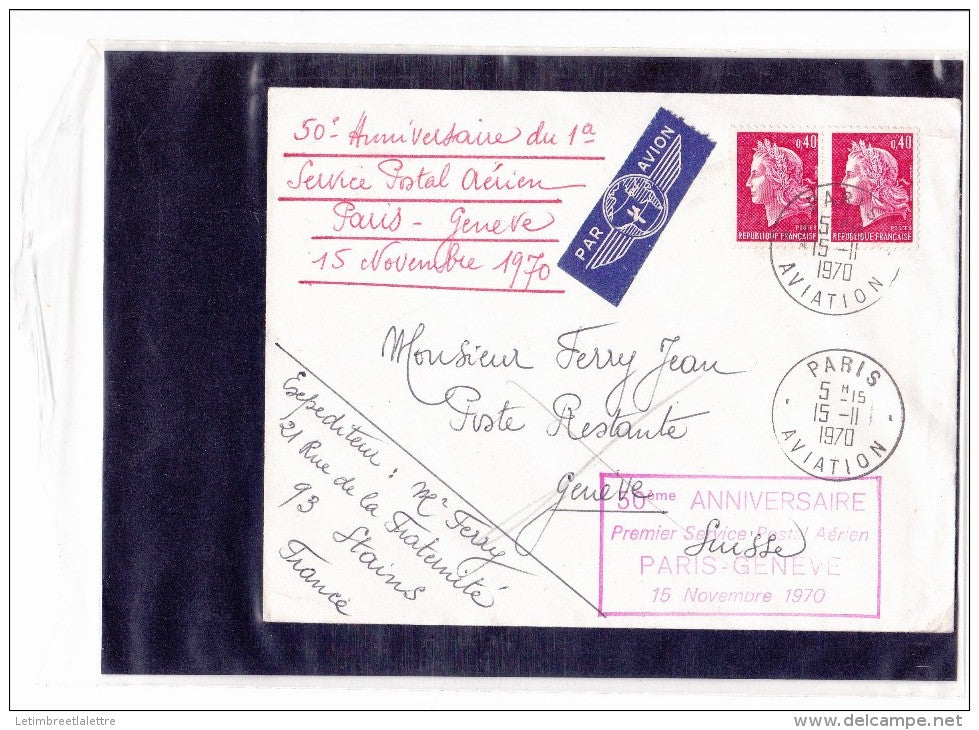 50e Anniversaire du 1a
Service Postal Aérien
Paris - Genève
15 Novembre 1970
PAR AVION
0,40
POSTES
REPUBLIQUE FRANÇAISE
0,40
POSTES
REPUBLIQUE FRANÇAISE
PARIS
15-11
1970
AVIATION
Monsieur Ferry Jean
Poste Restante
Genève
Suisse
PARIS
5 H 15
15-11
1970
AVIATION
Expéditeur : Mr Ferry
21 Rue de la Fraternité
93 Stains
France
50ème ANNIVERSAIRE
Premier Service Postal Aérien
PARIS-GENEVE
15 Novembre 1970
Letimbreetlalettre
www.delcampe.net